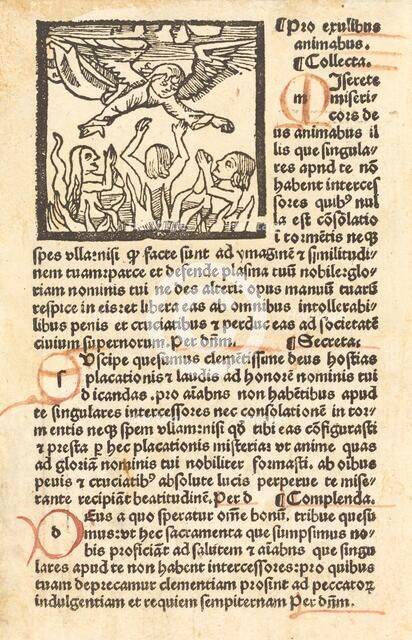 ¶Pro exulibus
animabus.
¶Collecta.
mIserere
miseri
cors de
us animabus il
lis que singula
res apud te nō
habent interces
sores quib⁹ nul
la est cōsolatio
i tormētis neqꝫ
spes vllarnisi ꝙ facte sunt ad ymaginē & similitudi
nem tuam:parce et defende plasma tuū nobile:glo
riam nominis tui ne des alteri: opus manuū tuarū
respice in eis:et libera eas ab omnibus intollerabi
libus penis et cruciatibus & perduc eas ad societatē
ciuium supernorum. Per dn̄m. ¶Secreta.
sUscipe quesumus clemētissime deus hostias
placationis & laudis ad honorē nominis tui
dicandas. pro aīabus non habētibus apud
te singulares intercessores nec consolationē in tor
mentis neqꝫ spem vllamnisi qd̄ tibi eas cōfigurasti
& presta ꝑ hec placationis misteria: vt anime quas
ad gloriam nominis tui nobiliter formasti. ab oībus
penis & cruciatib⁹ absolute lucis perpetue te mise
rante recipiāt beatitudinē. Per d ¶Complenda.
dEus a quo speratur om̄e bonū, tribue quesu
mus:vt hec sacramenta que sumpsimus no
bis proficiāt ad salutem & aīabus que singu
lares apud te non habent intercessores:pro quibus
tuam deprecamur clementiam prosint ad peccatoꝝ
indulgentiam et requiem sempiternam Per dn̄m.